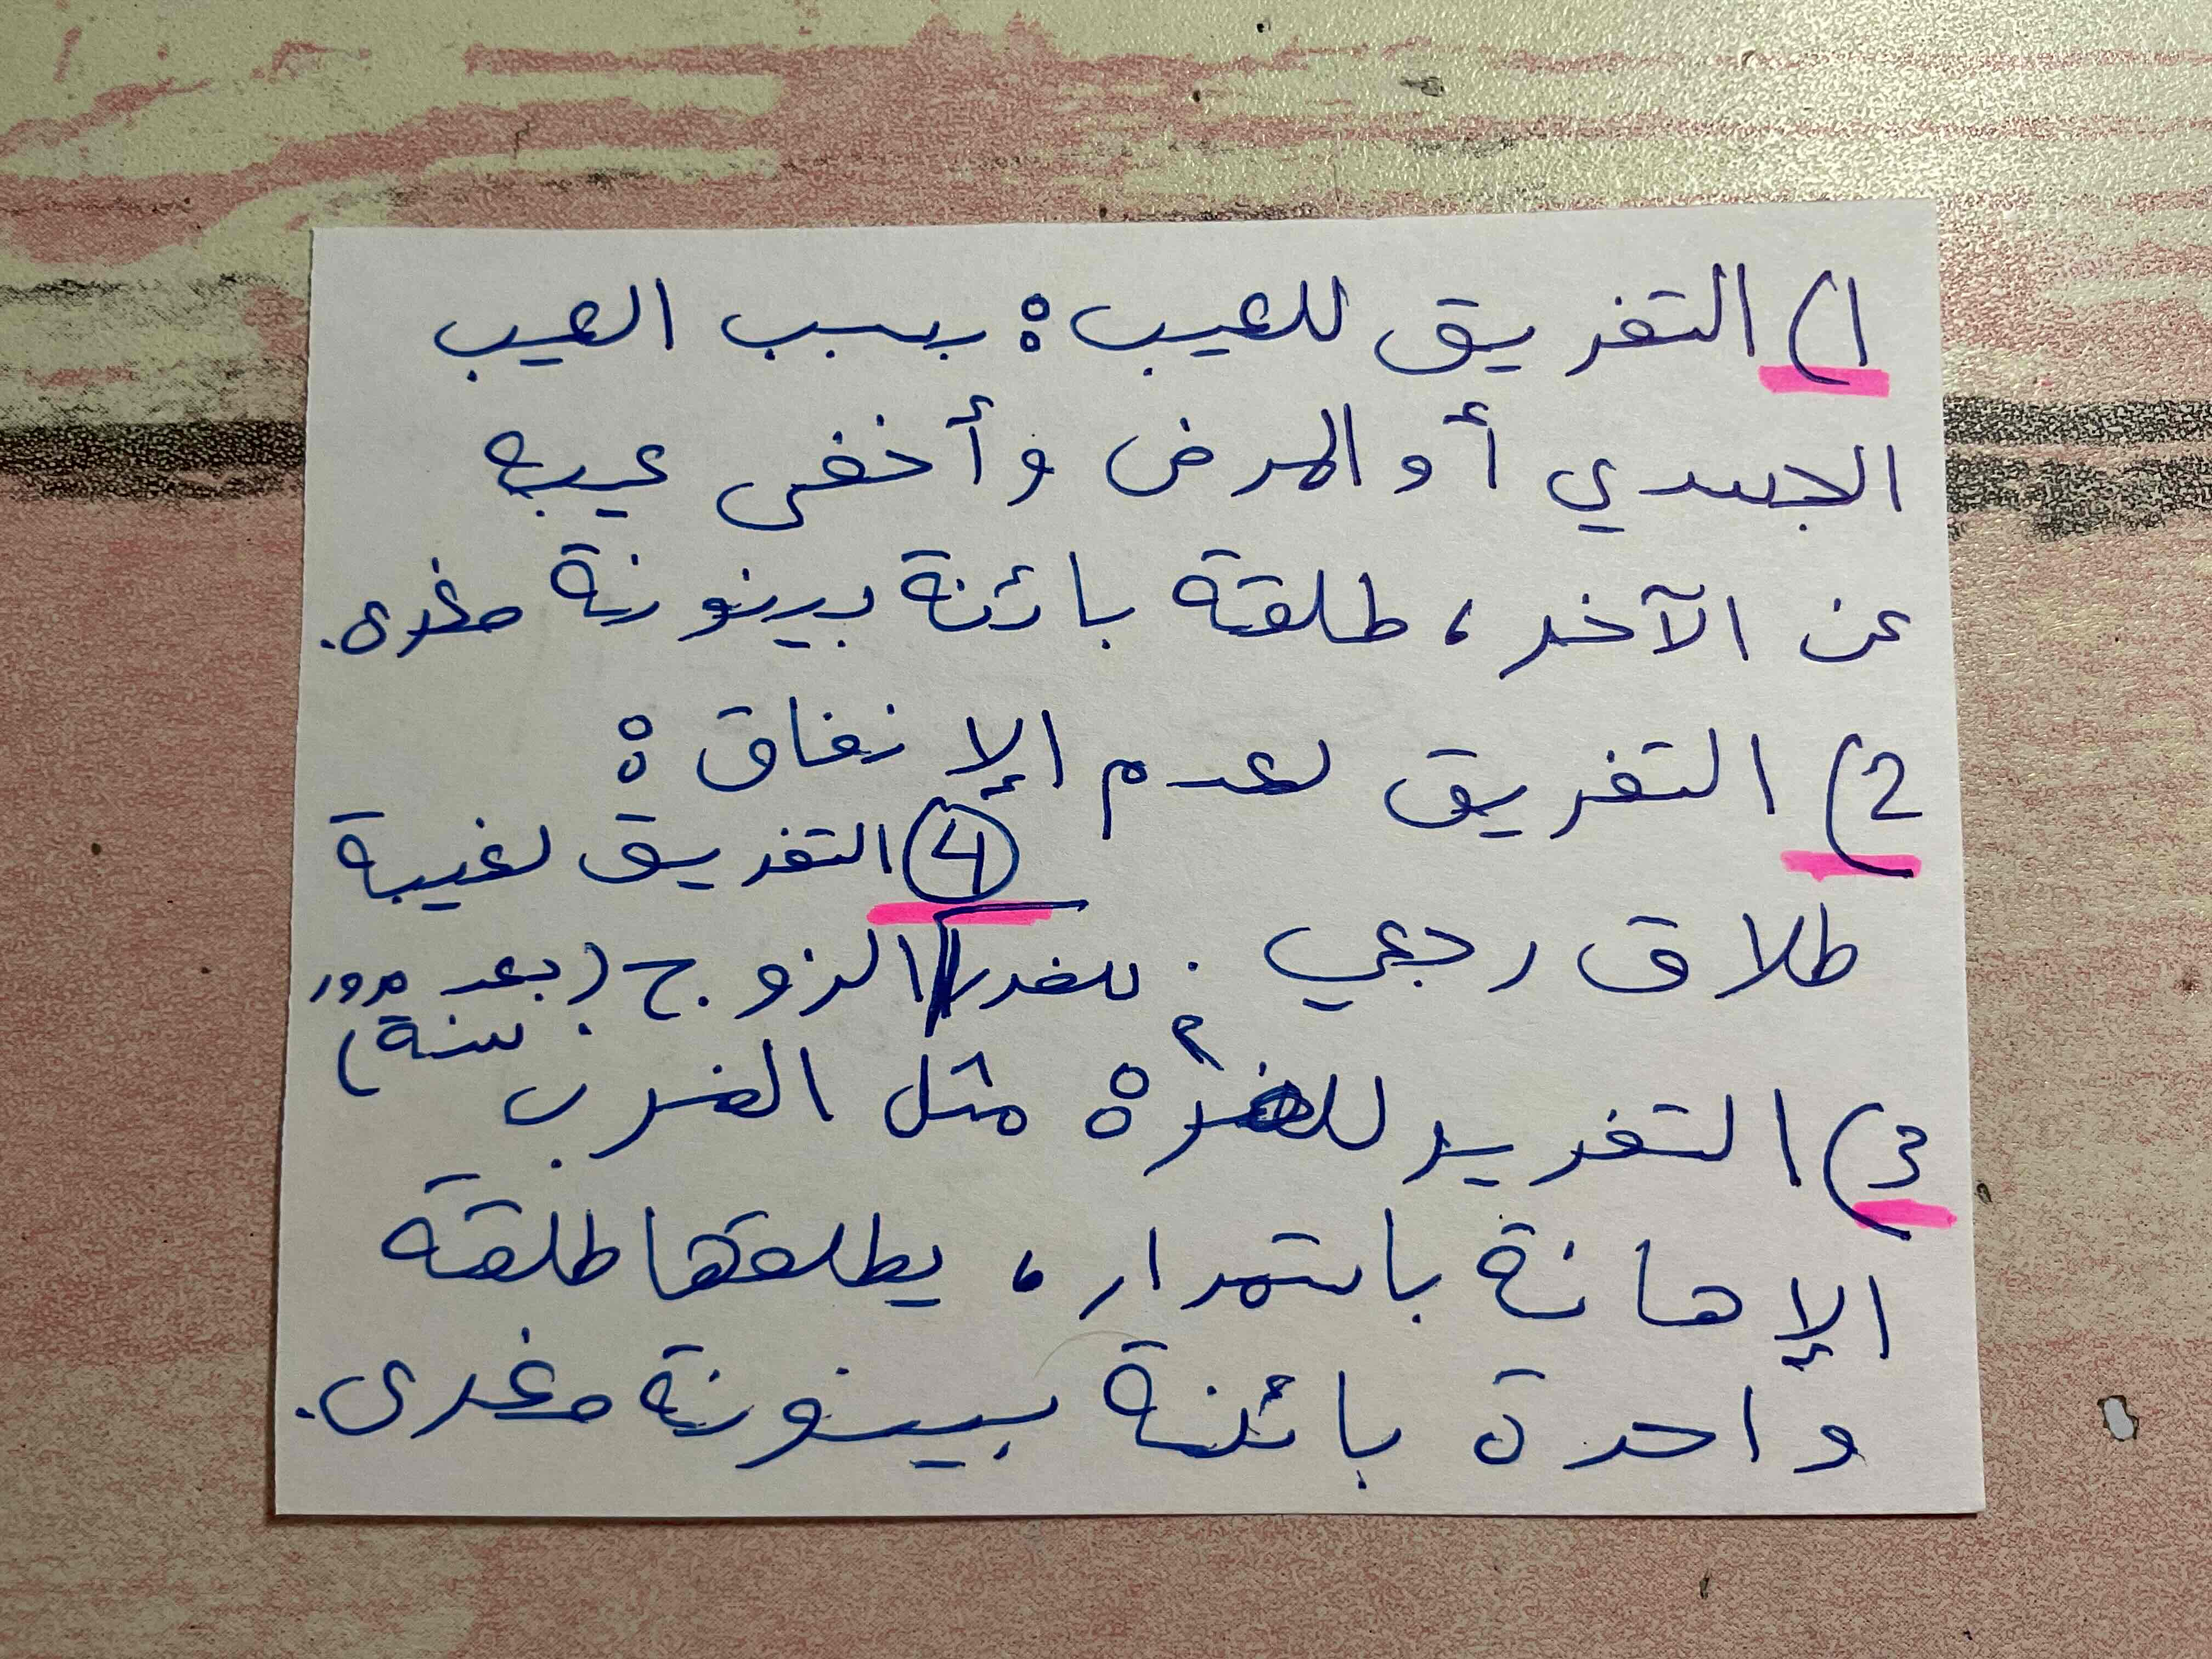 1) التفريق للعيب: بسبب العيب
الجسدي أو المرض وأخفى عيبه
عن الآخر، طلقة بائنة بينونة صغرى.
2) التفريق لعدم الإنفاق:
طلاق رجعي. للضرر
4 التفريق لغيبة
الزوج (بعد مرور
سنة)
3) التفرير للضرر: مثل الضرب
الإهانة باستمرار، يطلقها طلقة
واحدة بائنة بينونة صغرى.